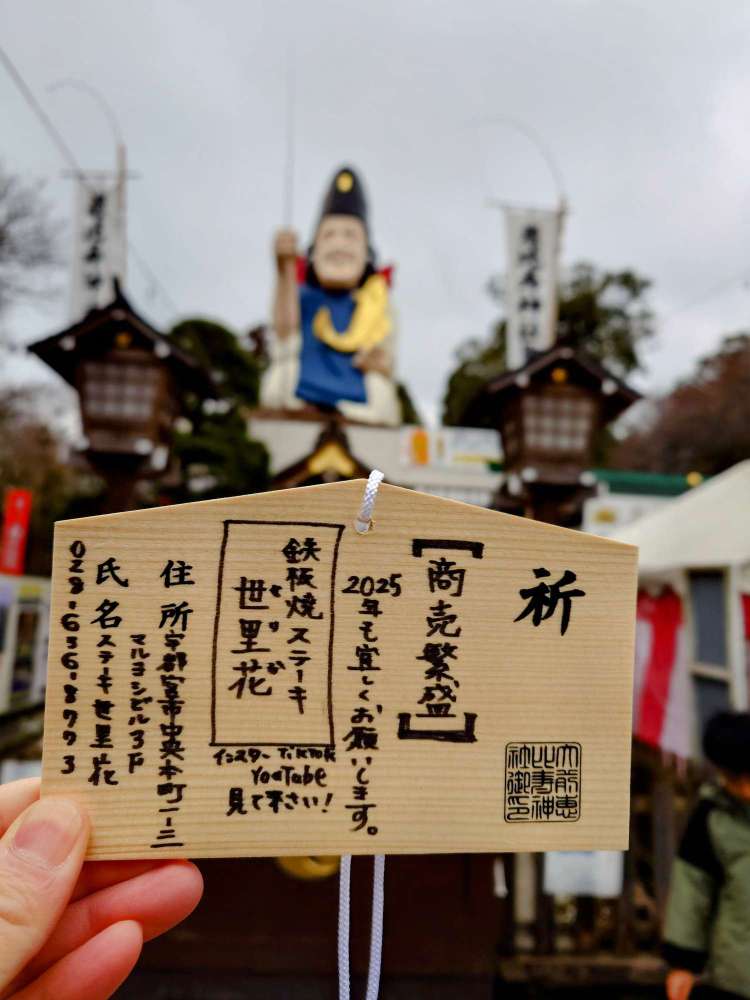 祈
【商売繁盛】
2025年も宜しくお願いします。
鉄板焼ステーキ
世里花
せりか
インスタ― TikTok
YouTube
見て下さい!
住所 宇都宮市中央本町1-二
マルヨシビル3F
氏名 ステーキ世里花
028-636-8773
大前恵比寿神社御印